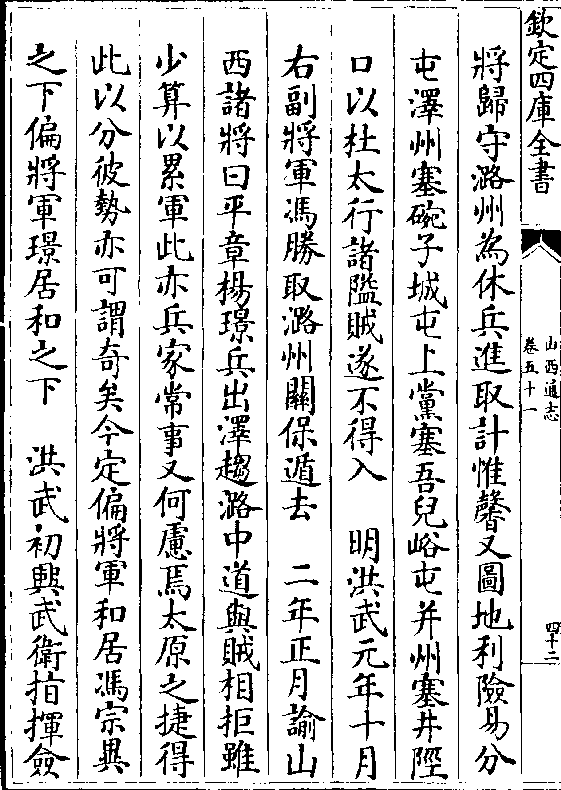 欽定四庫全書
山西通志
卷五十一
四十二
將歸守潞州為休兵進取計惟馨又圖地利險易分
屯澤州塞碗子城屯上黨塞吾兒峪屯并州塞井陘
口以杜太行諸隘賊遂不得入　明洪武元年十月
右副將軍馮勝取潞州關保遁去　二年正月諭山
西諸將曰平章楊璟兵出澤趨潞中道與賊相拒雖
少算以累軍此亦兵家常事又何慮焉太原之捷得
此以分彼勢亦可謂奇矣今定偏將軍和居馮宗異
之下偏將軍璟居和之下　洪武初興武衛指揮僉